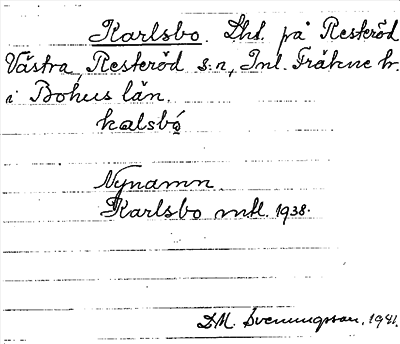 Karlsbo. Lht. på Resteröd
Västra, Resteröd s:n, Inl. Fräkne hr.
i Bohus län.
kalsbó
Nynamn.
Karlsbo mtl. 1938.
D.M. Svenungsson, 1941.